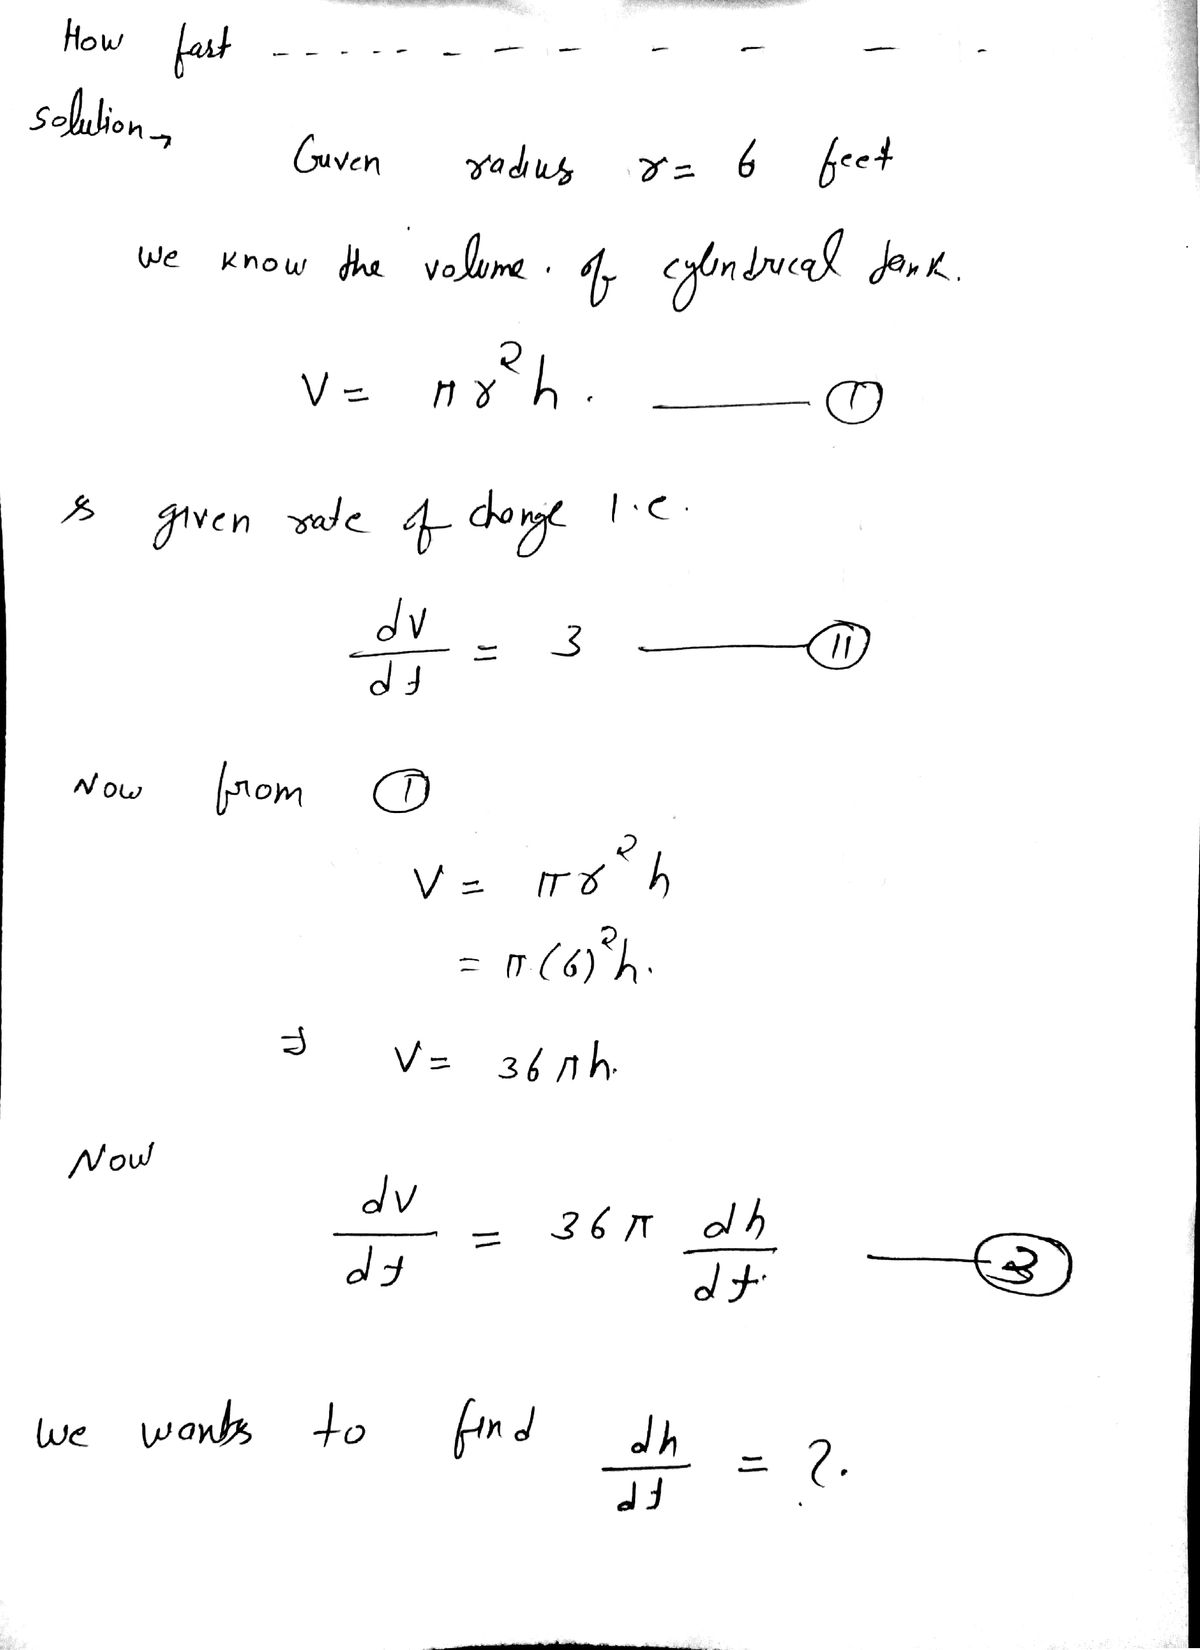 How fast ------ - - - - - - -
Solution →
Given radius r = 6 feet
we know the volume . of cylindrical tank.
V = πr²h . —— ①
& given rate of change i.e.
dv/dt = 3 —— ⑪
Now from ①
V = πr²h
= π(6)²h.
⇒ V = 36πh.
Now
dv/dt = 36π dh/dt. —— ③
we wants to find dh/dt = ?.